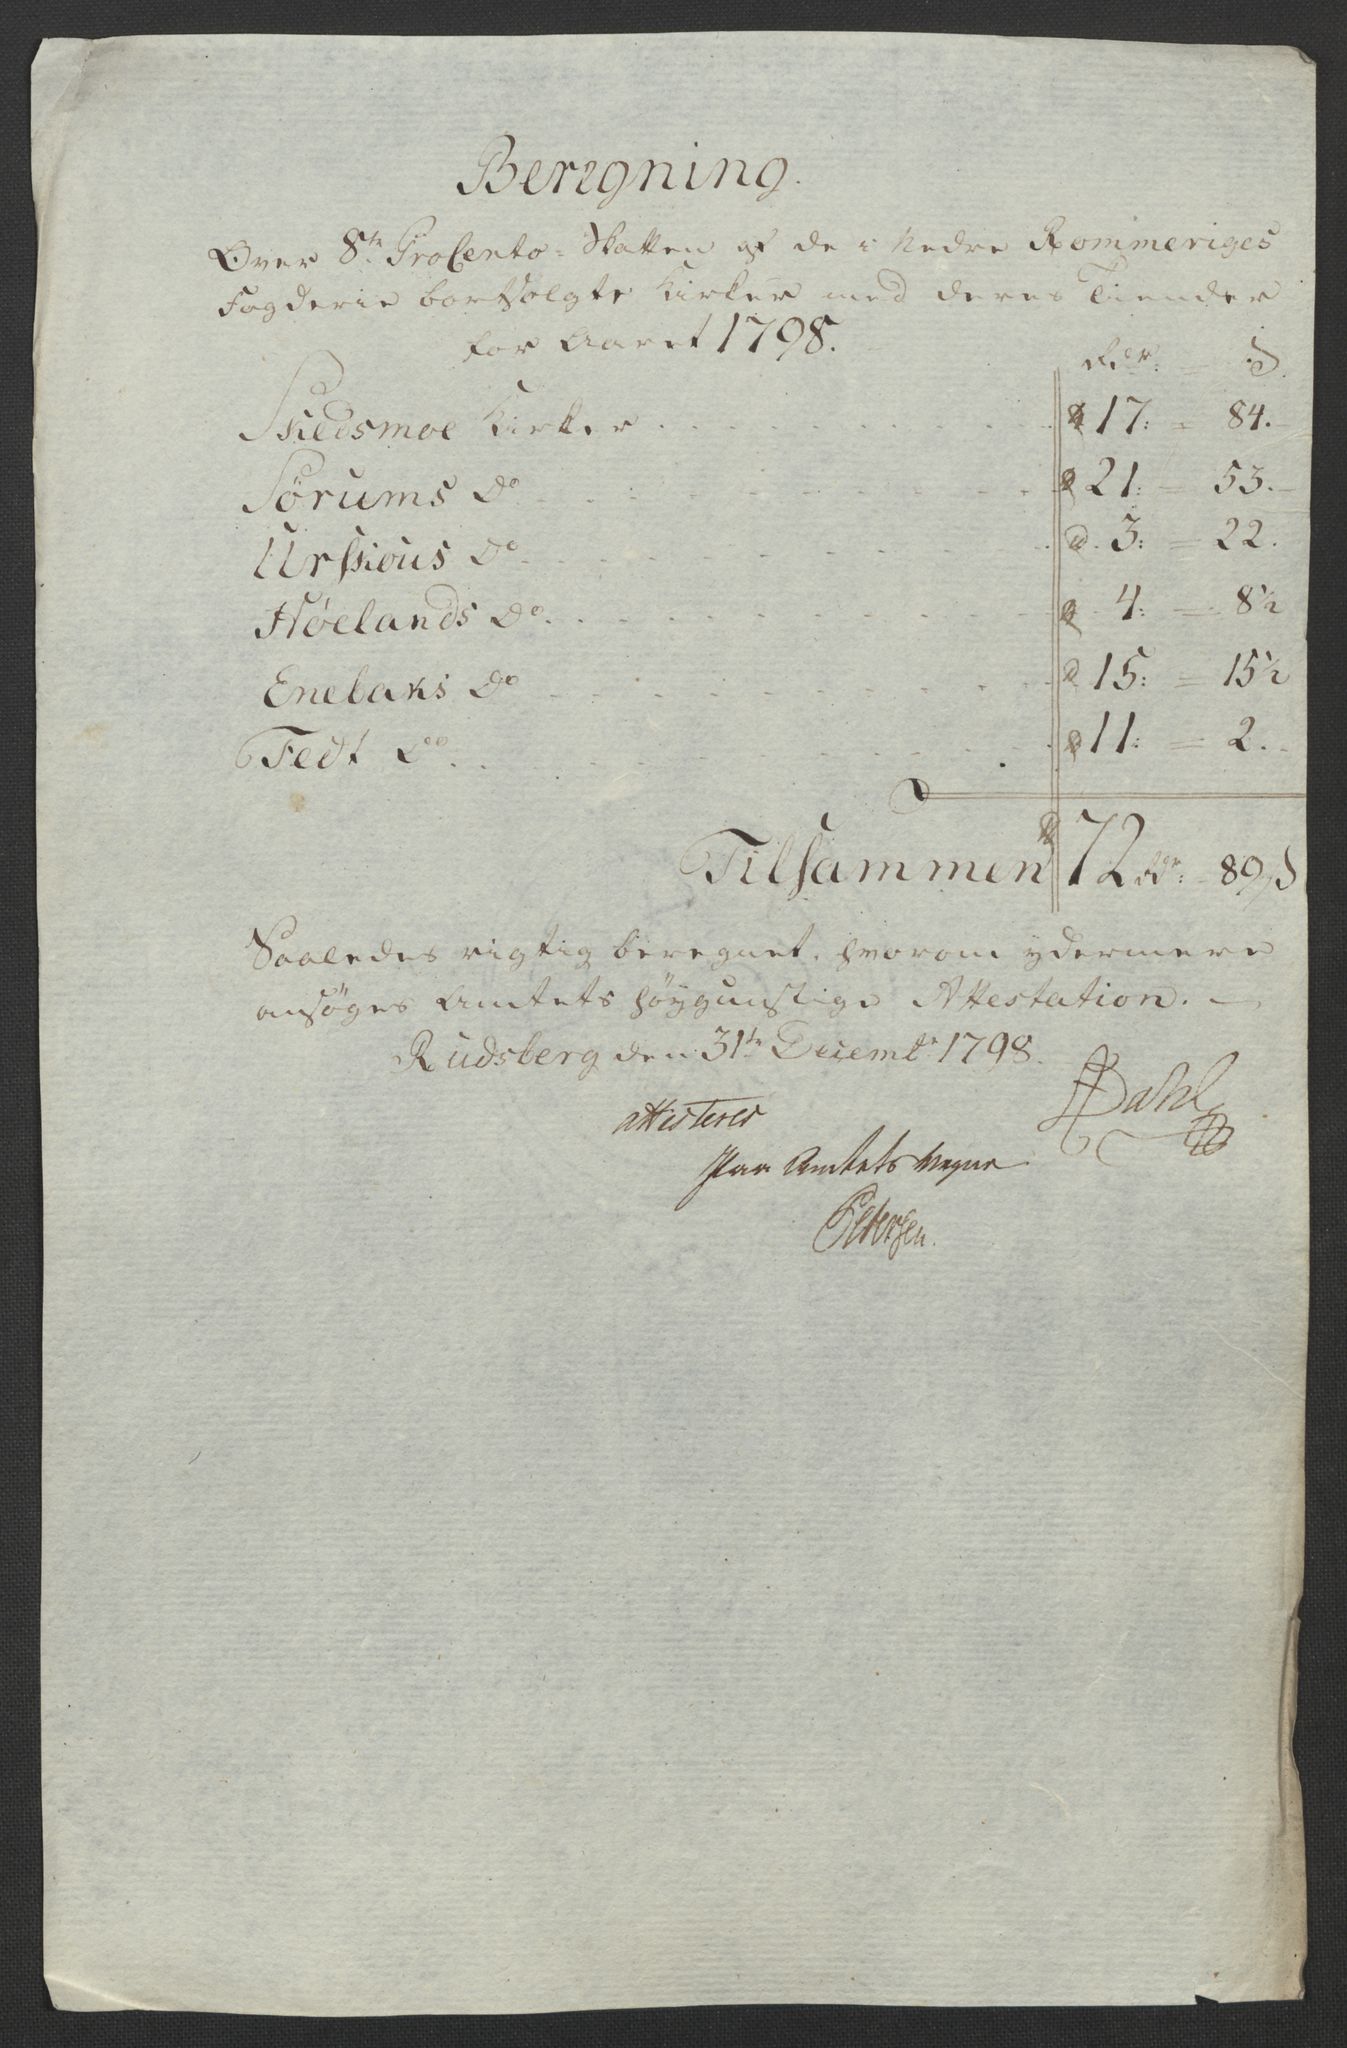 Beregning.
Over 8te ProCento-Skatten af de i Nedre Rommeriges
Fogderie bortsolgte Kirker med deres Tiender
for Aaret 1798.
Rdr: = ß.
Skiedsmoe Kirker . . . 17: = 84.
Sørums Do . . . 21: = 53.
Urskious Do . . . 3: = 22.
Høelands Do . . . 4: = 8½
Enebaks Do . . . 15: = 15½
Fedt Do . . . 11: = 2.
Tilsammen 72 Rdr: 89 ß
Saaledes rigtig beregnet, hvorom ydermere
ansøges Amtets høygunstige Attestation.
Rudsberg den 31te Decembr 1798.
Dahl
attesteres
Paa Amtets Vegne
Petersen.